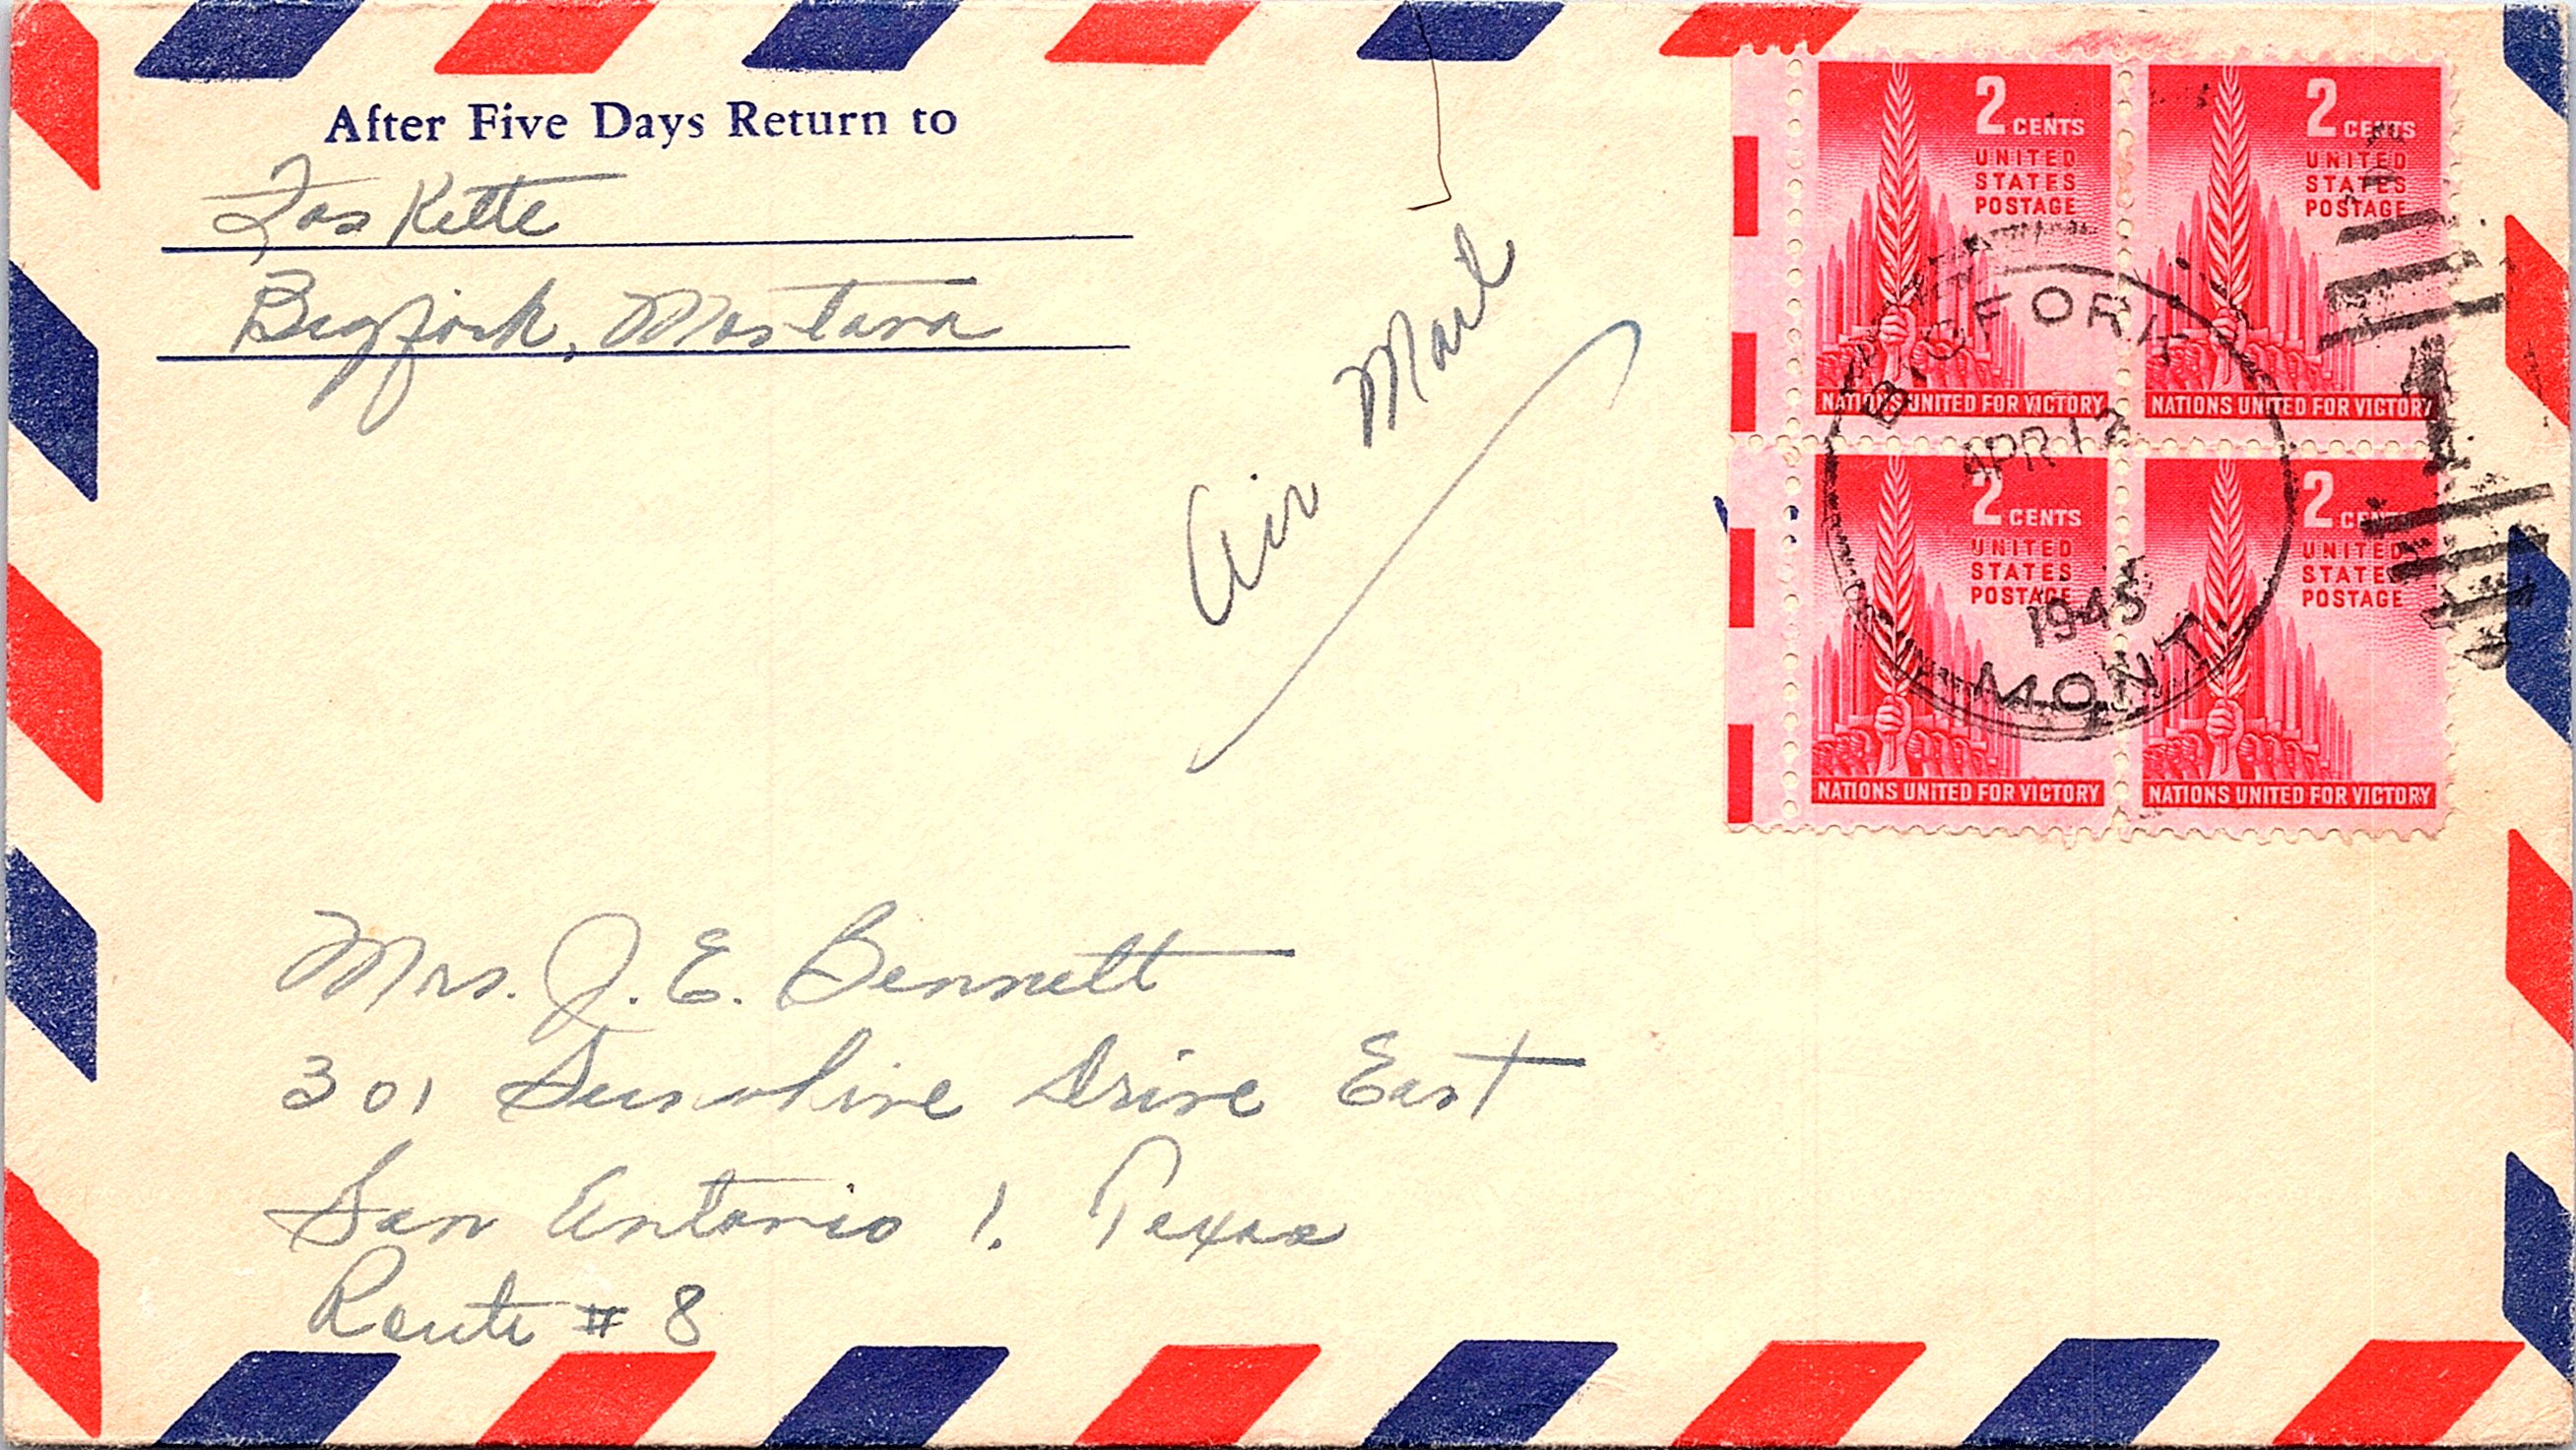 After Five Days Return to
Bigfork, Montana
Air Mail
2 CENTS
UNITED
STATES
POSTAGE
NATIONS UNITED FOR VICTORY
2 CENTS
UNITED
STATES
POSTAGE
NATIONS UNITED FOR VICTORY
2 CENTS
UNITED
STATES
POSTAGE
NATIONS UNITED FOR VICTORY
2 CENTS
UNITED
STATES
POSTAGE
NATIONS UNITED FOR VICTORY
BIGFORK
APR 12
1945
MONT.
Mrs. J. E. Bennett
301 Sunshine Drive East
San Antonio 1. Texas
Route # 8